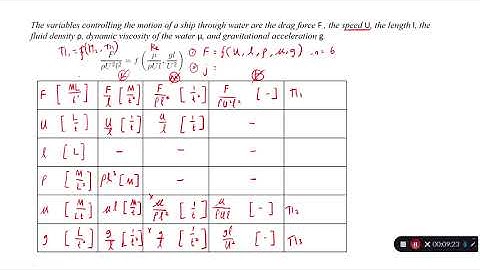 The variables controlling the motion of a ship through water are the drag force F , the speed U, the length l, the
fluid density ρ, dynamic viscosity of the water μ, and gravitational acceleration g.
π₁ = f(π₂, π₃) Re
F/ρU²l² = f (μ/ρUl, gl/U²)
① F = f( u, l, ρ, μ, g) n = 6
② j =
F [ML/t²] F/l [M/t²] F/ρl⁴ [1/t²] F/ρu²l² [-] π₁
u [L/t] u/l [1/t] u/l [1/t] –
l [L] – – –
ρ [M/L³] ρl³ [M] – –
μ [M/Lt] μl [M/t] μ/ρl² [1/t] μ/ρul [-] π₂
g [L/t²] g/l [1/t²] g/l [1/t²] gl/u² [-] π₃
00:09:23